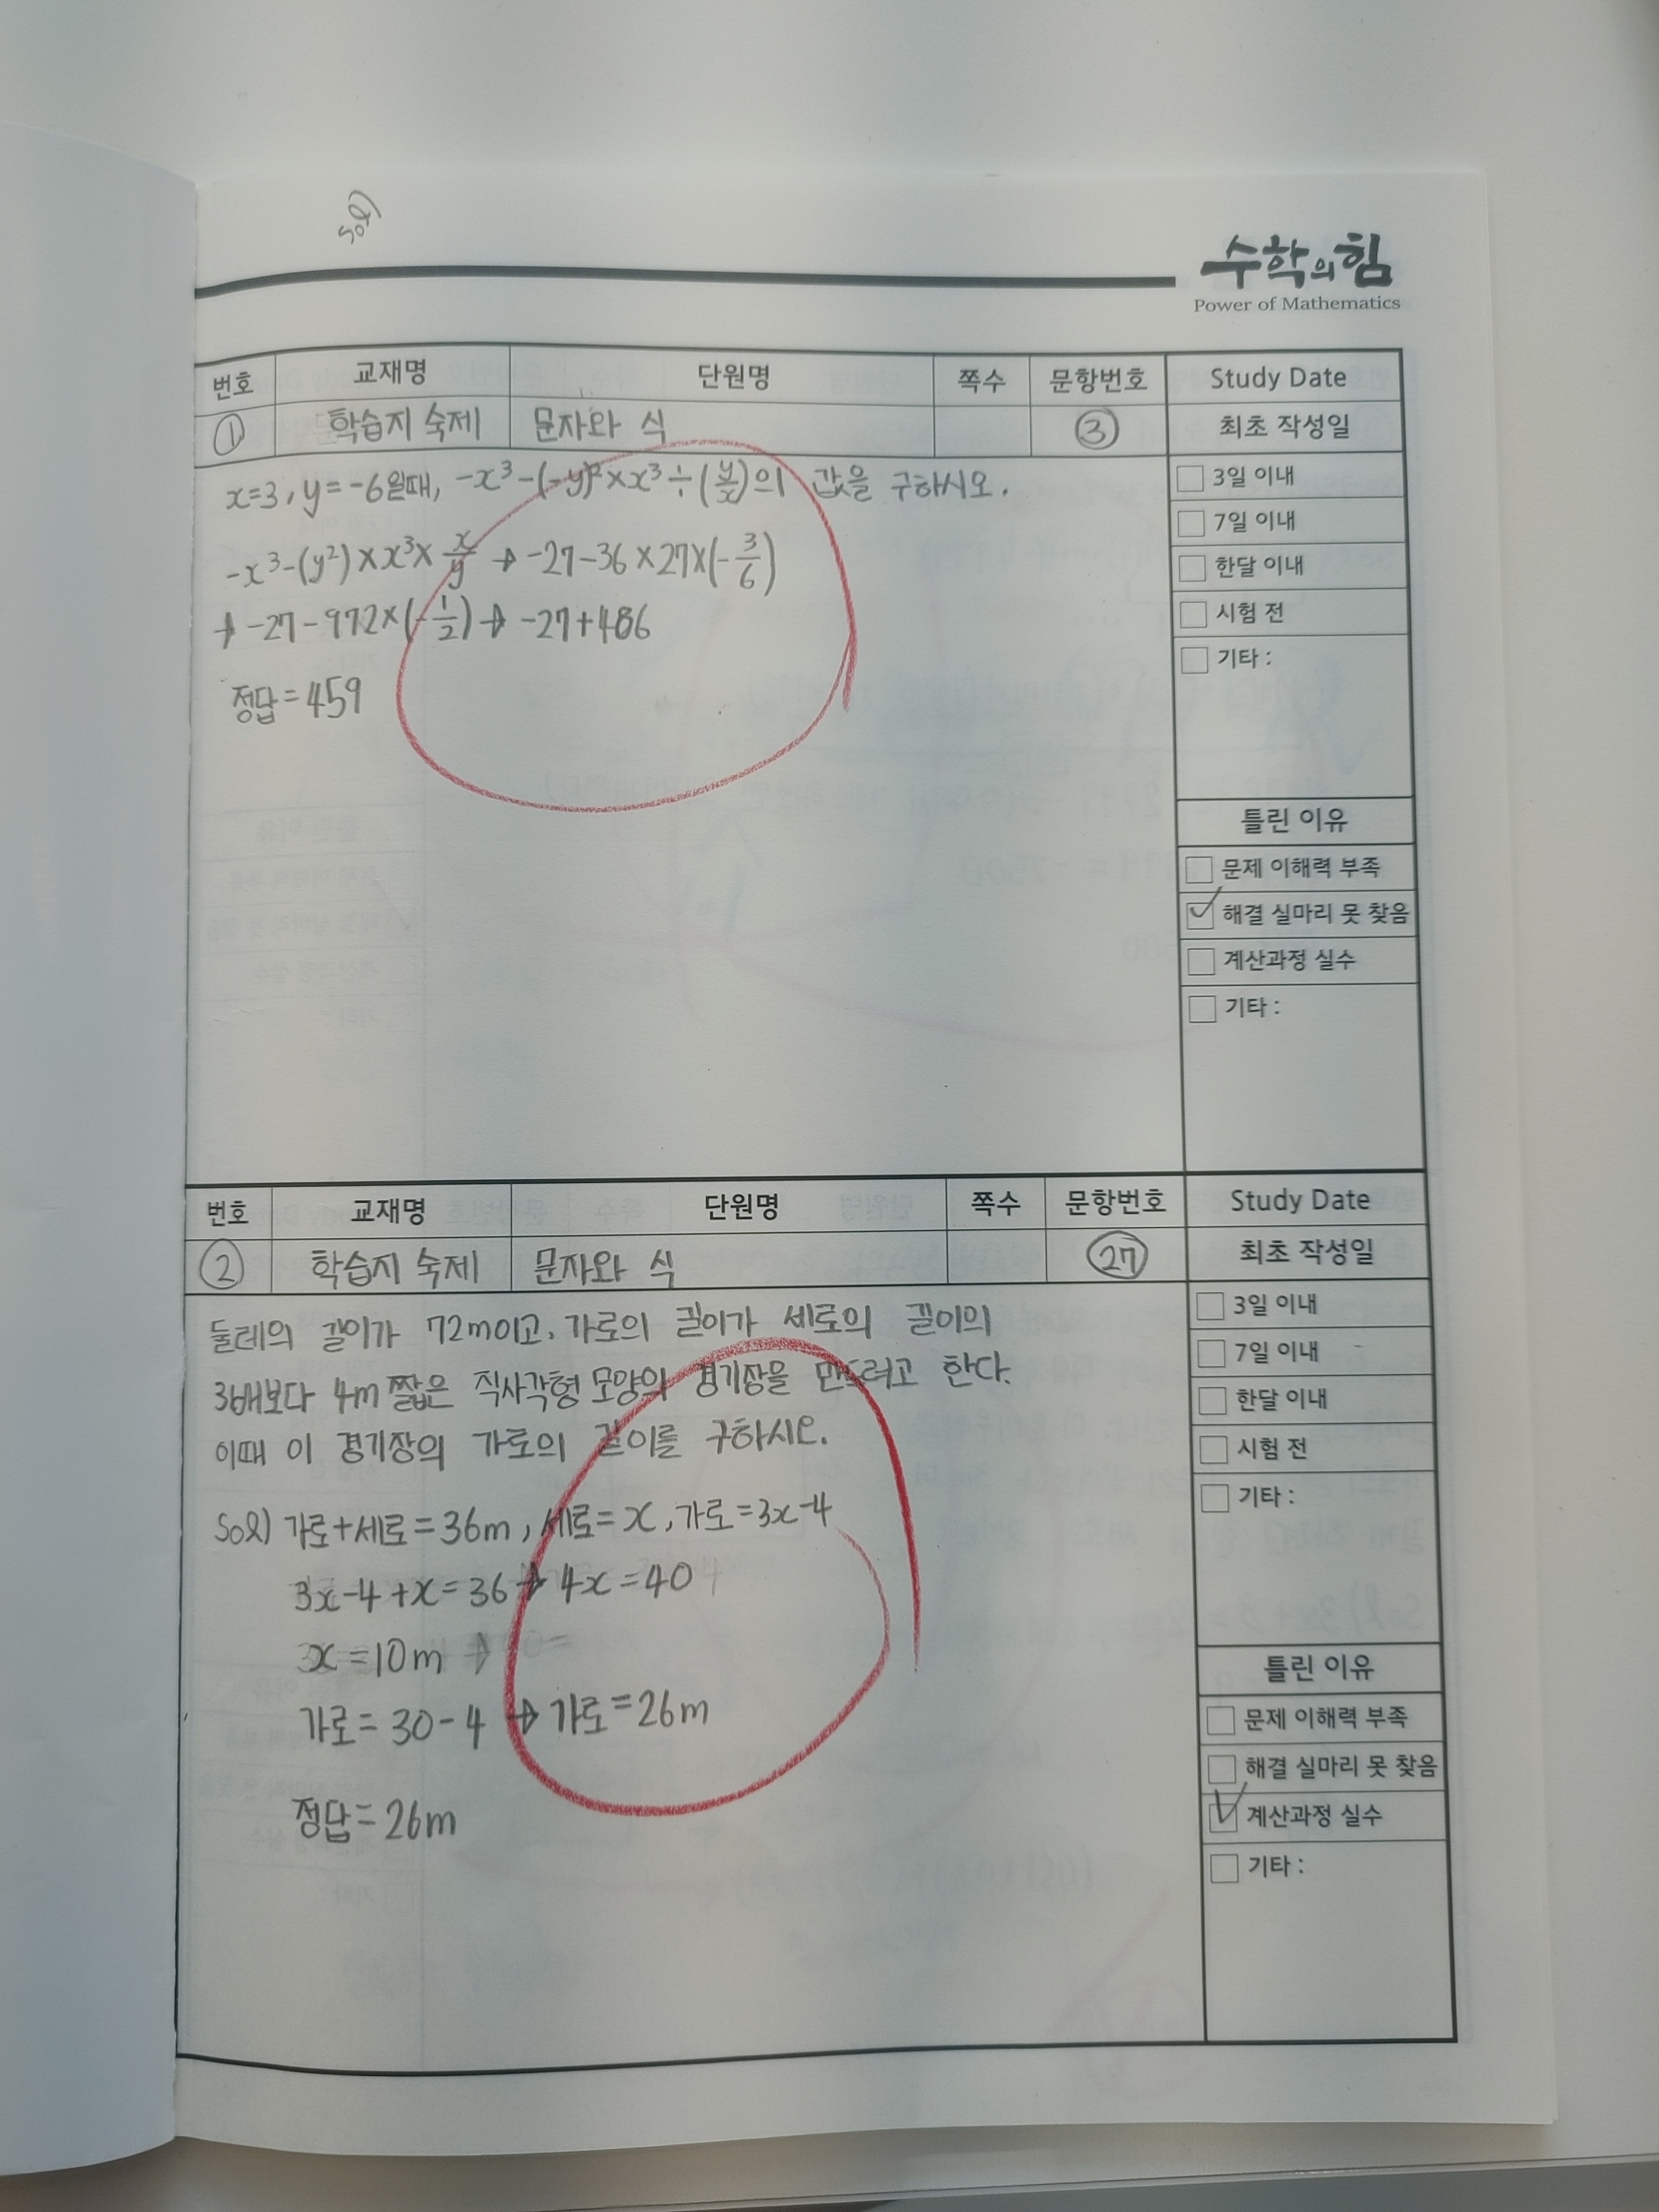 sol)
수학의힘
Power of Mathematics
번호 교재명 단원명 쪽수 문항번호 Study Date
① 학습지 숙제 문자와 식 ③ 최초 작성일
x=3, y=-6일때, -x³-(-y)²×x³÷(y/x)의 값을 구하시오.
-x³-(y²)×x³×x/y → -27-36×27×(-3/6)
→ -27-972×(-1/2) → -27+486
정답=459
3일 이내
7일 이내
한달 이내
시험 전
기타 :
틀린 이유
문제 이해력 부족
해결 실마리 못 찾음
계산과정 실수
기타 :
번호 교재명 단원명 쪽수 문항번호 Study Date
② 학습지 숙제 문자와 식 ㉗ 최초 작성일
둘레의 길이가 72m이고, 가로의 길이가 세로의 길이의
3배보다 4m 짧은 직사각형 모양의 경기장을 만드려고 한다.
이때 이 경기장의 가로의 길이를 구하시오.
Sol) 가로+세로=36m, 세로=x, 가로=3x-4
3x-4+x=36 → 4x=40
x=10m →
가로=30-4 → 가로=26m
정답=26m
3일 이내
7일 이내
한달 이내
시험 전
기타 :
틀린 이유
문제 이해력 부족
해결 실마리 못 찾음
계산과정 실수
기타 :